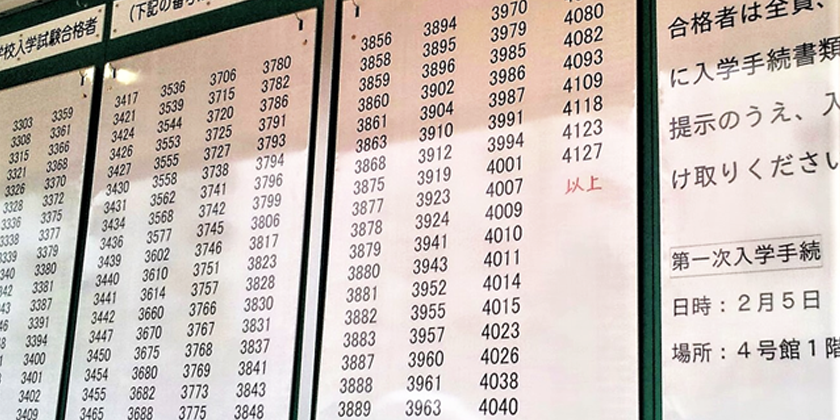 学校入学試験合格者
(下記の番号
3303 3359
3308 3361
3315 3366
3321 3368
3326 3370
3328 3372
3336 3375
3338 3377
3339 3379
3380
3381
3387
3391
3394
3400
3401
3402
3409
3417 3536 3706 3780
3421 3539 3715 3782
3424 3544 3720 3786
3426 3553 3725 3791
3427 3555 3727 3793
3430 3558 3738 3794
3431 3562 3741 3796
3434 3568 3742 3799
3436 3577 3745 3806
3439 3602 3746 3817
3440 3610 3751 3823
3441 3614 3757 3828
3442 3660 3766 3830
3447 3670 3767 3831
3450 3675 3768 3837
3454 3680 3769 3841
3455 3682 3773 3843
3465 3688 3775 3848
3970 4080
3856 3894 3979 4082
3858 3895 3985 4093
3859 3896 3986 4109
3860 3902 3987 4118
3861 3904 3991 4123
3863 3910 3994 4127
3868 3912 4001 以上
3875 3919 4007
3877 3923 4009
3878 3924 4010
3879 3941 4011
3880 3943 4014
3881 3952 4015
3882 3955 4023
3883 3957 4026
3887 3960 4038
3888 3961 4040
3889 3963
合格者は全員、
に入学手続書類
提示のうえ、入
け取りください
第一次入学手続
日時：２月５日
場所：４号館１階